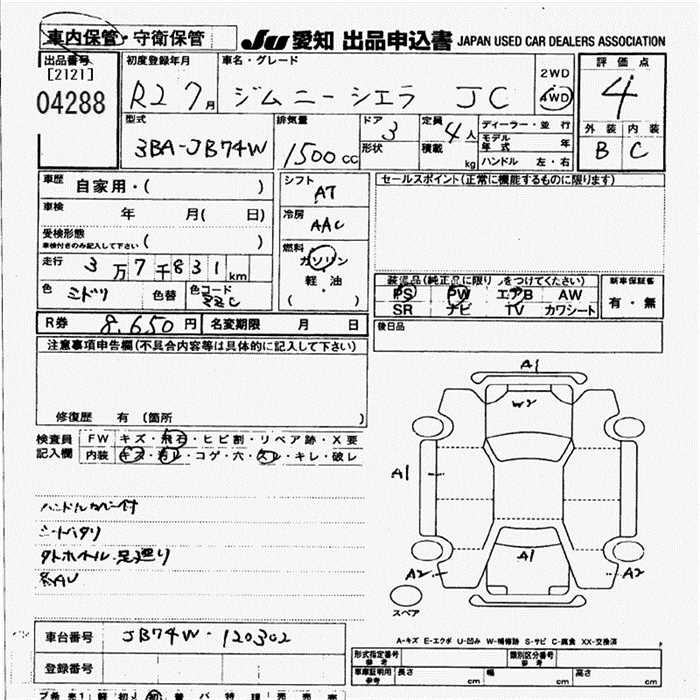 車内保管・守衛保管 JU 愛知 出品申込書 JAPAN USED CAR DEALERS ASSOCIATION
出品番号 初度登録年月 車名・グレード 評価点
[2121] 2WD
04288 R2 7月 ジムニーシエラ JC 4WD 4
型式 排気量 ドア 定員 ディーラー・並行 外装 内装
3BA-JB74W 1500cc 3 4人 モデル年式 年 B C
形状 積載 kg ハンドル 左・右
車歴 自家用・( ) シフト AT セールスポイント(正常に機能するものに限ります)
車検 年 月( 日) 冷房 AAC
受検形態
車検付きのみ記入して下さい ( ) 燃料 ガソリン
走行 3万7千831km ・軽油
色 ミドリ 色替 色コード ( ) 装備品(純正品に限り○をつけてください) 新車保証書
PS PW エアB AW 有・無
SR ナビ TV カワシート
R券 8,650円 名変期限 月 日 後日品
注意事項申告欄(不具合内容等は具体的に記入して下さい)
修復歴 有 (箇所 )
検査員 FW キズ・飛石・ヒビ割・リペア跡・X要
記入欄 内装 キズ・汚レ・コゲ・穴・スレ・キレ・破レ
A1
W2
A1
A1
A2 A2
スペア
ハンドルカバー付
シートヘタリ
タホイール・足廻り
A-キズ E-エクボ U-凹み W-補修跡 S-サビ C-腐食 XX-交換済
車台番号 JB74W-120302 形式指定番号 参考 類別区分番号 参考
登録番号 車庫証明用 参考 長さ cm 幅 cm 高さ cm